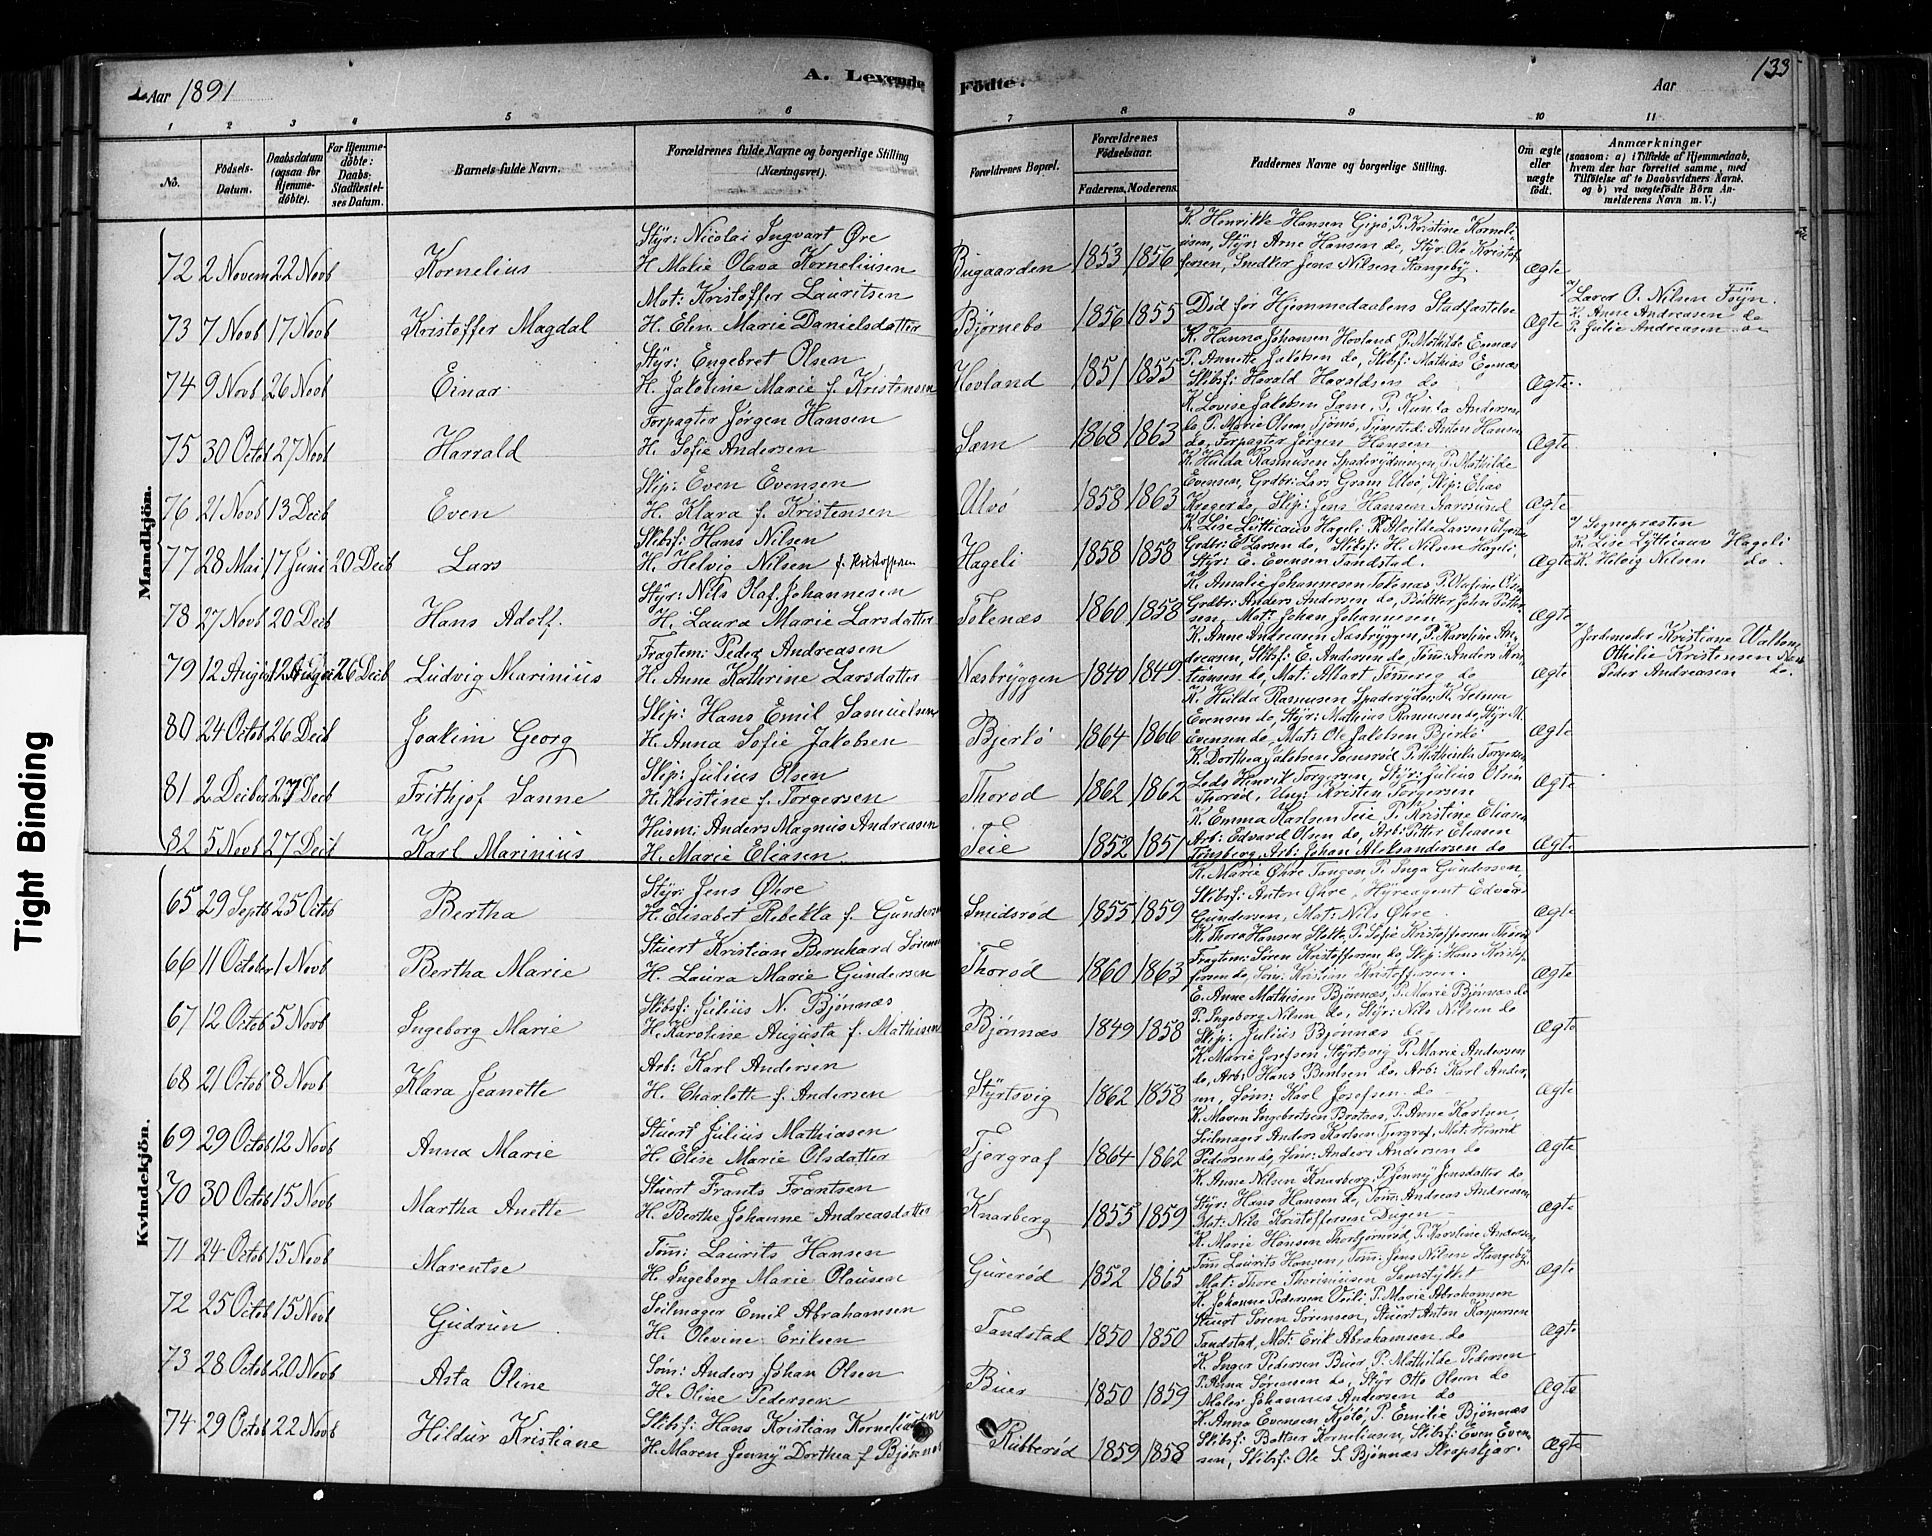 Aar 1891
A. Levende Födte.
Aar
133
1 2 3 4 5 6 7 8 9 10 11
No.
Födsels-Datum.
Daabsdatum (ogsaa for Hjemme-döbte).
For Hjemme-döbte: Daabs-Stadfæstel-ses Datum.
Barnets fulde Navn.
Forældrenes fulde Navne og borgerlige Stilling (Næringsvei).
Forældrenes Bopæl.
Forældrenes Födselsaar.
Faderens. Moderens.
Faddernes Navne og borgerlige Stilling.
Om ægte eller uægte födt.
Anmærkninger
(saasom: a) i Tilfælde af Hjemmedaab,
hvem der har forrettet samme, med
Tilföielse af to Daabsvidners Navne,
og b) ved uægtefödte Börn An-
melderens Navn m. V.)
Mandkjön.
72 2 Novem 22 Novb Kornelius
Styr: Nicolai Ingvart Øre
H. Makie Olava Korneliusen
Bugaarden 1853 1856
K. Henrikke Hansen Gipö, P. Kristine Korneli-
usen, Styr: Arne Hansen do, Styr: Ole Kristof-
fersen, Snedker Jens Nilsen Stangeby.
Ægte
73 7 Novb 17 Novb Kristoffer Magdal
Mat: Kristoffer Lauritsen
H. Elen Marie Danielsdatter
Björnebo 1856 1855
Död før Hjemmedaabens Stadfæstelse
Ægte
Lærer O. Nilsen Föyn.
K. Anne Andreasen do
P. Julie Andreasen do
74 9 Novb 26 Novb Einar
Styr: Engebret Olsen
H. Jakobine Marie f. Kristensen
Hovland 1851 1855
K. Hanna Johansen Hovland P. Mathilde Evenæs
P. Annette Jakobsen do, Skibsf: Mathias Evenæs
Skibsf: Harald Haraldsen do
Ægte
75 30 Octob 27 Novb Harrald
Forpagter Jörgen Hansen
H. Sofie Andersen
Sæm 1868 1863
K. Lovise Jakobsen Sæm, P. Andersen
do P. Marie Olsen Tjömö, Anton Hansen
do, Forpagter Jörgen Hansen
Ægte
76 21 Novb 13 Decb Even
Skip: Even Evensen
H. Klara f. Kristensen
Ulvö 1858 1863
K. Hulda Rasmusen P. Mathilde
Evensen, Grdbr: Lars Gram Ulvö, Skip: Elias
Kroger do, Skip: Jens Hansen
Ægte
77 28 Mai 17 Juni 20 Decb Lars
Skibsf: Hans Nilsen
H. Helvig Nilsen f. Kristoffersen
Hageli 1858 1858
K. Lise Lytticauv Hageli, K. Alvilde Larsen
Grdbr: E Larsen do, Skibsf: H. Nilsen Hageli,
Styr: E. Evensen Tandstad.
Ægte
Sognepræsten
K. Lise Lytticauv Hageli
K. Helvig Nilsen do.
78 27 Novb 20 Decb Hans Adolf.
Styr: Nils Olaf Johannesen
H. Laura Marie Larsdatter
Tokenæs 1860 1858
K. Amalie Johannesen Tokenæs
Grdbr: Anders Andersen do, Bödtker John Petter-
sen, Mat: Johan Johannesen
Ægte
79 12 August 12 August 26 Decb Ludvig Marinius
Fragtem: Peder Andreasen
H. Anne Kathrine Larsdatter
Næsbryggen 1840 1849
K. Anne Andreasen Næsbryggen, P. Karoline An-
dreasen, Skibsf: E. Andersen do, Töm: Anders Kris-
tiansen do, Mat: Albart do
Ægte
Jordemoder Kristiane
Othilie Kristensen
Peder Andreasen do.
80 24 Octob 26 Decb Joakim Georg
Skip: Hans Emil Samuelsen
H. Anna Sofie Jakobsen
Bjerkö 1864 1866
K. Hulda Rasmusen K. Selma
Evensen do, Styr: Mathias Rasmusen do, Styr M.
Evensen do, Mat: Ole Jakobsen Bjerkö
Ægte
81 2 Decber 27 Decb Frithjof Sanne
Skip: Julius Olsen
H. Kristine f. Torgersen
Thorød 1862 1862
K. Dorthea Jakobsen P. Mathinka Torgersen
Lods Henrik Torgersen, Styr: Julius Olsen
Thorød, Ung: Kristen Torgersen
Ægte
82 5 Novb 27 Decb Karl Marinius
Husm: Anders Magnus Andreasen
H. Marie Eliasen
Teie 1852 1851
K. Emma Karlsen Teie P. Kristine Eliasen
Arb: Edvard Olsen do, Arb: Petter Eliasen
Tönsberg, Arb: Johan Aleksandersen do
Ægte
Kvindekjön.
65 29 Septb 25 Octob Bertha
Styr: Jens Øhre
H. Elisabet Rebekka f. Gundersen
Smidsrød 1855 1859
K. Marie Øhre Tangen, P. Inga Gundersen,
Skibsf: Anton Øhre, Hyreagent Edvard
Gundersen, Mat: Nils Øhre.
Ægte
66 11 October 1 Novb Bertha Marie
Stuert Kristian Bernhard Sörensen
H. Laura Marie Gundersen
Thorød 1860 1863
K. Thora Hansen Stokke, P. Sofie Kristoffersen Thorød
Fragtem: Sören Kristoffersen do, Skip: Hans Kristof-
fersen do, Söm: Kristian Kristoffersen.
Ægte
67 12 Octob 5 Novb Ingeborg Marie
Skibsf: Julius N. Bjönnæs
H. Karoline Augusta f. Mathisen
Bjönnæs 1849 1858
E. Anne Mathisen Bjönnæs, P. Marie Bjönnæs do
P. Ingeborg Nilsen do, Styr: Nils Nilsen do
Skip: Julius Bjönnæs do
Ægte
68 21 Octob 8 Novb Klara Jeanette
Arb: Karl Andersen
H. Charlotte f. Andersen
Styrtsvig 1862 1858
K. Marie Josefsen Styrtsvig P. Marie Andersen
do, Arb: Hans Bentsen do, Arb: Karl Ander-
sen, Söm: Karl Josefsen do
Ægte
69 29 Octob 12 Novb Anna Marie
Stuert Julius Mathiasen
H. Elise Marie Olsdatter
Tjergraf 1864 1862
K. Maren Ingebretsen Bratnæs, P. Anne Karlsen
Seilmager Anders Karlsen Tjergraf, Mat: Henrik
Pedersen do, Söm: Anders Andersen do
Ægte
70 30 Octob 15 Novb Martha Anette
Stuert Frants Frantsen
H. Berthe Johanne Andreasdatter
Knarberg 1855 1859
K. Anne Nilsen Knarberg, P. Jenny Jensdatter do
Styr: Hans Hansen do, Töm: Andreas Andreasen
Mat: Nils Kristoffersen Dugen
Ægte
71 24 Octob 15 Novb Marentse
Töm: Laurits Hansen
H. Ingeborg Marie Olausen
Gurerød 1852 1865
K. Marie Hansen Thorbjörnrød, P. Karoline Andersen,
Töm Laurits Hansen, Töm: Jens Nilsen Stangeby,
Mat: Thore
Ægte
72 25 Octob 15 Novb Gudrun
Seilmager Emil Abrahamsen
H. Olevine Eriksen
Tandstad 1850 1850
K. Johanne Pedersen Veilö, P. Marie Abrahamsen
Stuert Sören Sörensen, Stuert Anton Kaspersen
Tandstad, Mat: Erik Abrahamsen do
Ægte
73 28 Octob 20 Novb Asta Oline
Söm: Anders Johan Olsen
H. Oline Pedersen
Buer 1850 1859
K. Inger Pedersen Buer, P. Mathilde Pedersen
P. Anna Sörensen do, Styr Otto Olsen do
Maler Johannes Andersen do
Ægte
74 29 Octob 22 Novb Hildur Kristiane
Skibsf: Hans Kristian Korneliusen
H. Maren Jenny Dorthea f Bjönnæs
Rubberød 1859 1858
K. Anna Evensen Kjölö, P. Emilie Bjönnæs
Skibsf: Bottser Korneliusen, Skibsf: Even Even-
sen, Skibsf: Ole S. Bjönnæs Skropskjær.
Ægte
Tight Binding